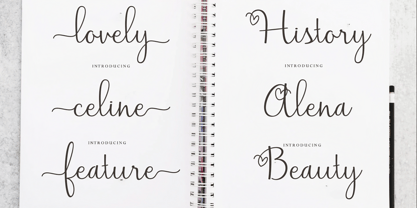 lovely
INTRODUCING
celine
INTRODUCING
feature
History
INTRODUCING
Alena
INTRODUCING
Beauty